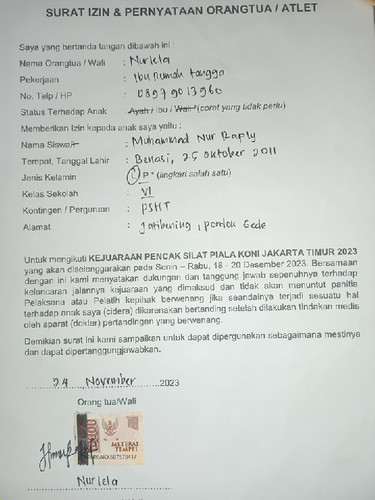 SURAT IZIN & PERNYATAAN ORANGTUA / ATLET
Saya yang bertanda tangan dibawah ini :
Nama Orangtua / Wali : Nurlela
Pekerjaan : Ibu Rumah tangga
No. Telp / HP : 08979013960
Status Terhadap Anak : Ayah / Ibu / Wali * (coret yang tidak perlu)
Memberikan Izin kepada anak saya yaitu :
Nama Siswa : Muhammad Nur Raply
Tempat, Tanggal Lahir : Bekasi, 25 Oktober 2011
Jenis Kelamin : L P * (lingkari salah satu)
Kelas Sekolah : VI
Kontingen / Perguruan : PSHT
Alamat : Jatibening, pondok Gede
Untuk mengikuti KEJUARAAN PENCAK SILAT PIALA KONI JAKARTA TIMUR 2023
yang akan diselenggarakan pada Senin – Rabu, 18 - 20 Desember 2023. Bersamaan
dengan ini kami menyatakan dukungan dan tanggung jawab sepenuhnya terhadap
kelancaran jalannya kejuaraan yang dimaksud dan tidak akan menuntut panitia
Pelaksana atau Pelatih kepihak berwenang jika seandainya terjadi sesuatu hal
terhadap anak saya (cidera) dikarenakan bertanding setelah dilakukan tindakan medis
oleh aparat (dokter) pertandingan yang berwenang.
Demikian surat ini kami sampaikan untuk dapat dipergunakan sebagaimana mestinya
dan dapat dipertanggungjawabkan.
24 November 2023
Orang tua/Wali
METERAI
TEMPEL
Nurlela